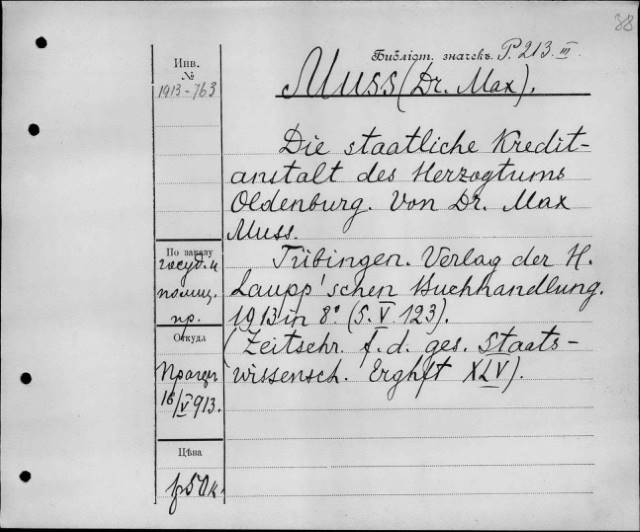 88
Библіот. значекъ. P. 213. III.
Инв.
№
1913-763
Muss (Dr. Max).
Die staatliche Kredit-
anstalt des Herzogtums
Oldenburg. Von Dr. Max
Muss.
Tübingen. Verlag der H.
Laupp'schen Buchhandlung.
1913 in 8° (S. V 123).
(Zeitschr. f. d. ges. Staats-
wissensch. Erghft XLV).
По заказу
госуд. и
полиц.
пр.
Откуда
16/V 913.
Цѣна